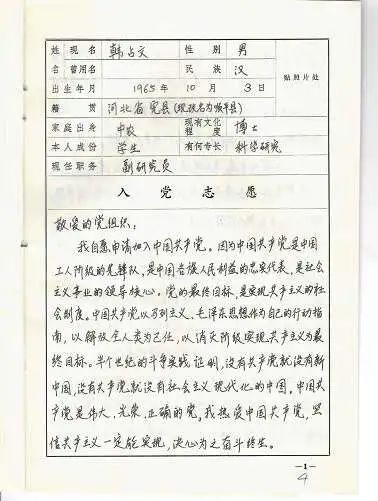 姓名 现名 韩占文 性别 男
曾用名 民族 汉 贴照片处
出生年月 1965年10月3日
籍贯 河北省完县(现改名为顺平县)
家庭出身 中农 现有文化程度 博士
本人成份 学生 有何专长 科学研究
现任职务 副研究员
入党志愿
敬爱的党组织:
我自愿申请加入中国共产党。因为中国共产党是中国
工人阶级的先锋队,是中国各族人民利益的忠实代表,是社会
主义事业的领导核心。党的最终目标,是实现共产主义的社
会制度。中国共产党以马列主义、毛泽东思想作为自己的行动指
南,以解放全人类为己任,以消灭阶级实现共产主义为最
终目标。半个世纪的斗争实践证明,没有共产党就没有新
中国,没有共产党就没有社会主义现代化的中国。中国共
产党是伟大、光荣、正确的党。我热爱中国共产党,坚
信共产主义一定能实现,决心为之奋斗终生。
—1—
4